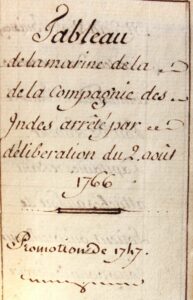 Tableau
de la marine de la
de la Compagnie des
Indes arrêté par
délibération du 2. août
1766
Promotion de 1747.